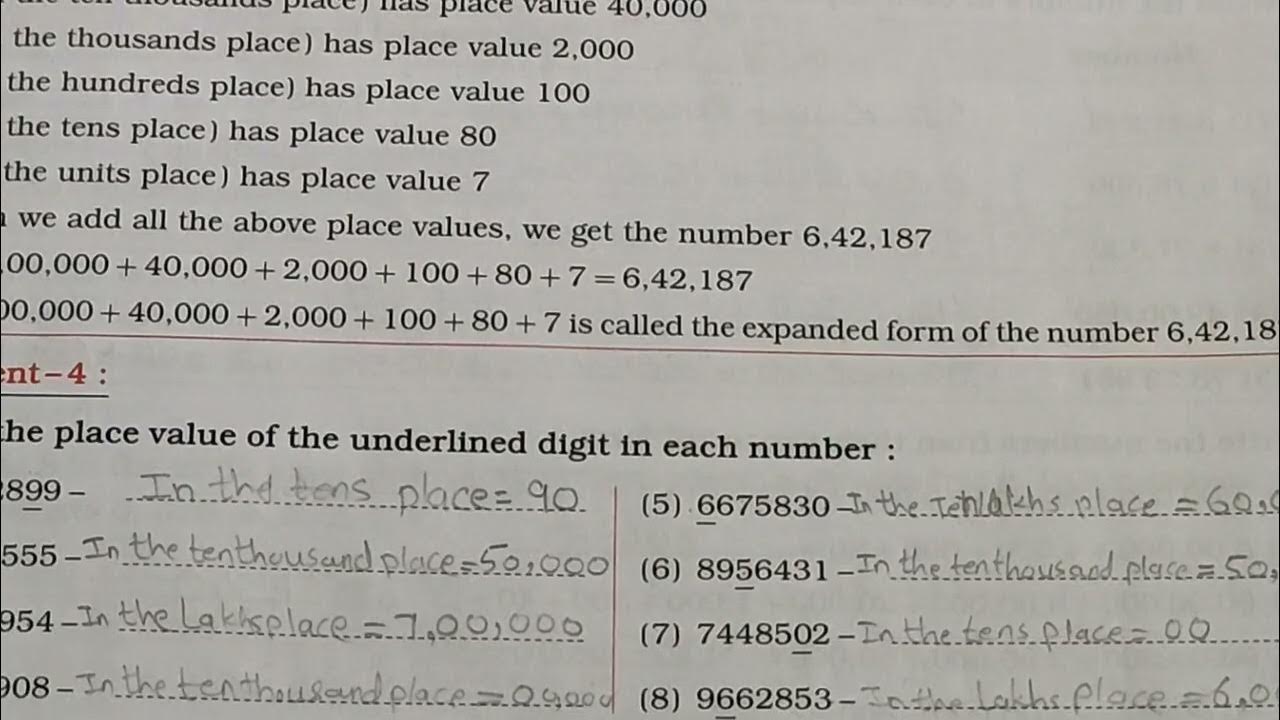 the ten thousands place) has place value 40,000
the thousands place) has place value 2,000
the hundreds place) has place value 100
the tens place) has place value 80
the units place) has place value 7
we add all the above place values, we get the number 6,42,187
00,000 + 40,000 + 2,000 + 100 + 80 + 7 = 6,42,187
00,000 + 40,000 + 2,000 + 100 + 80 + 7 is called the expanded form of the number 6,42,18
ent-4 :
the place value of the underlined digit in each number :
899 - In the tens place = 90
555 - In the tenthousand place = 50,000
954 - In the Lakhs place = 7,00,000
908 - In the tenthousand place = 0,000
(5) 6675830 - In the Ten lakhs place = 60,0
(6) 8956431 - In the tenthousand place = 50,
(7) 7448502 - In the tens place = 00
(8) 9662853 - In the Lakhs place = 6,0